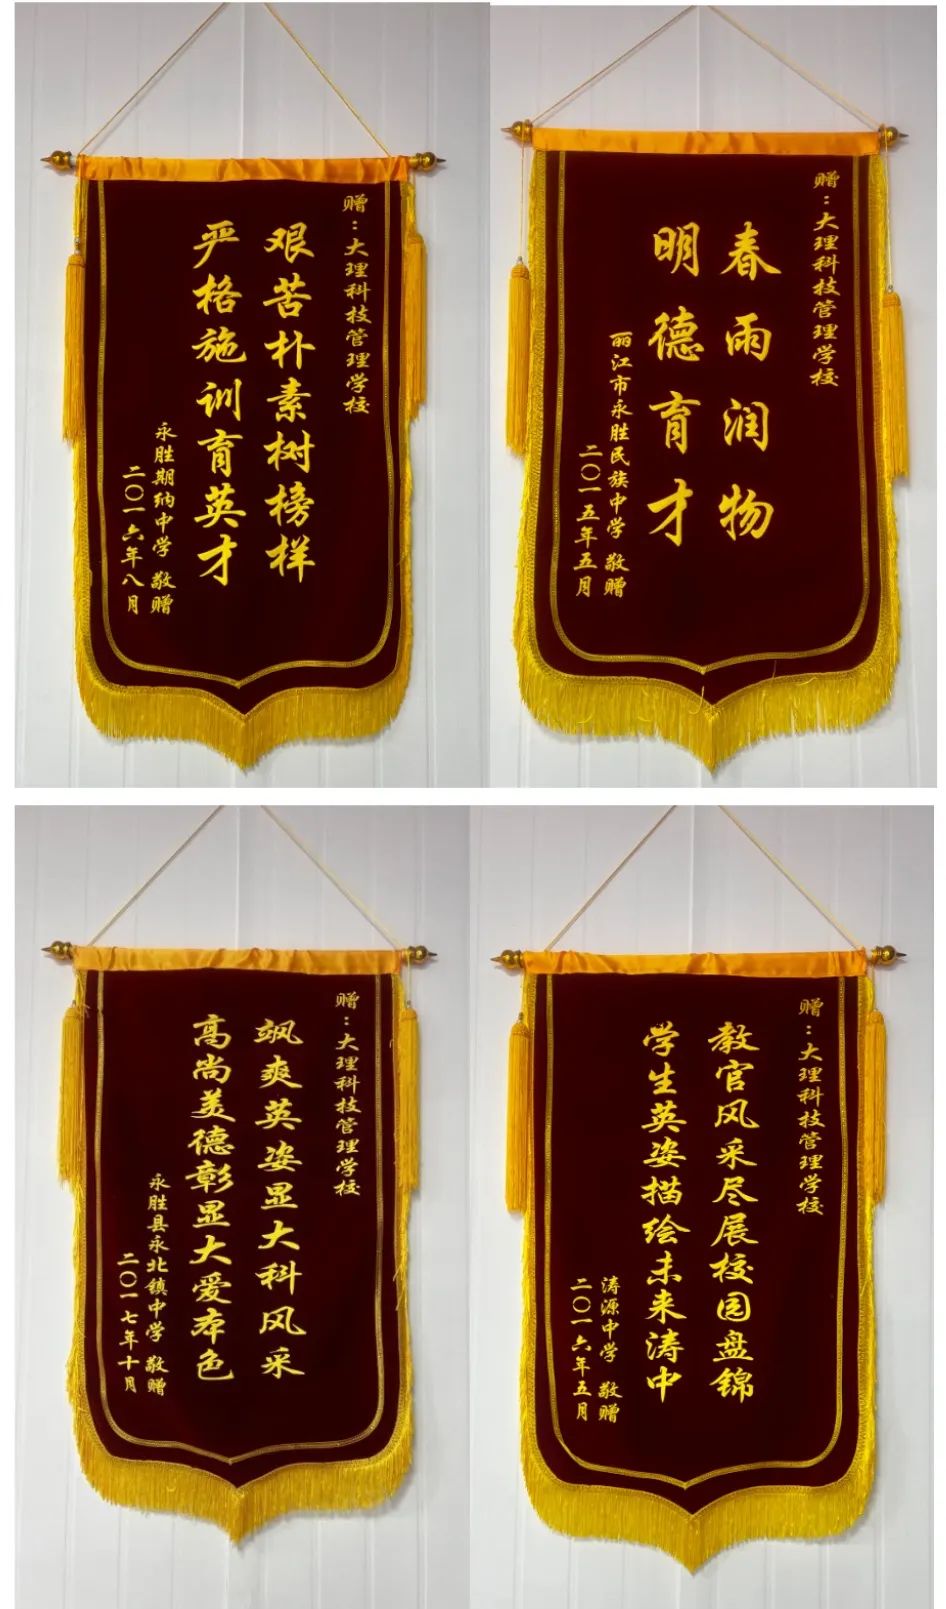 赠：大理科技管理学校
艰苦朴素树榜样
严格施训育英才
永胜期纳中学 敬赠
二〇一六年八月
赠：大理科技管理学校
春雨润物
明德育才
丽江市永胜民族中学 敬赠
二〇一五年五月
赠：大理科技管理学校
飒爽英姿显大科风采
高尚美德彰显大爱本色
永胜县永北镇中学 敬赠
二〇一七年十月
赠：大理科技管理学校
教官风采尽展校园盘锦
学生英姿描绘未来涛中
涛源中学 敬赠
二〇一六年五月